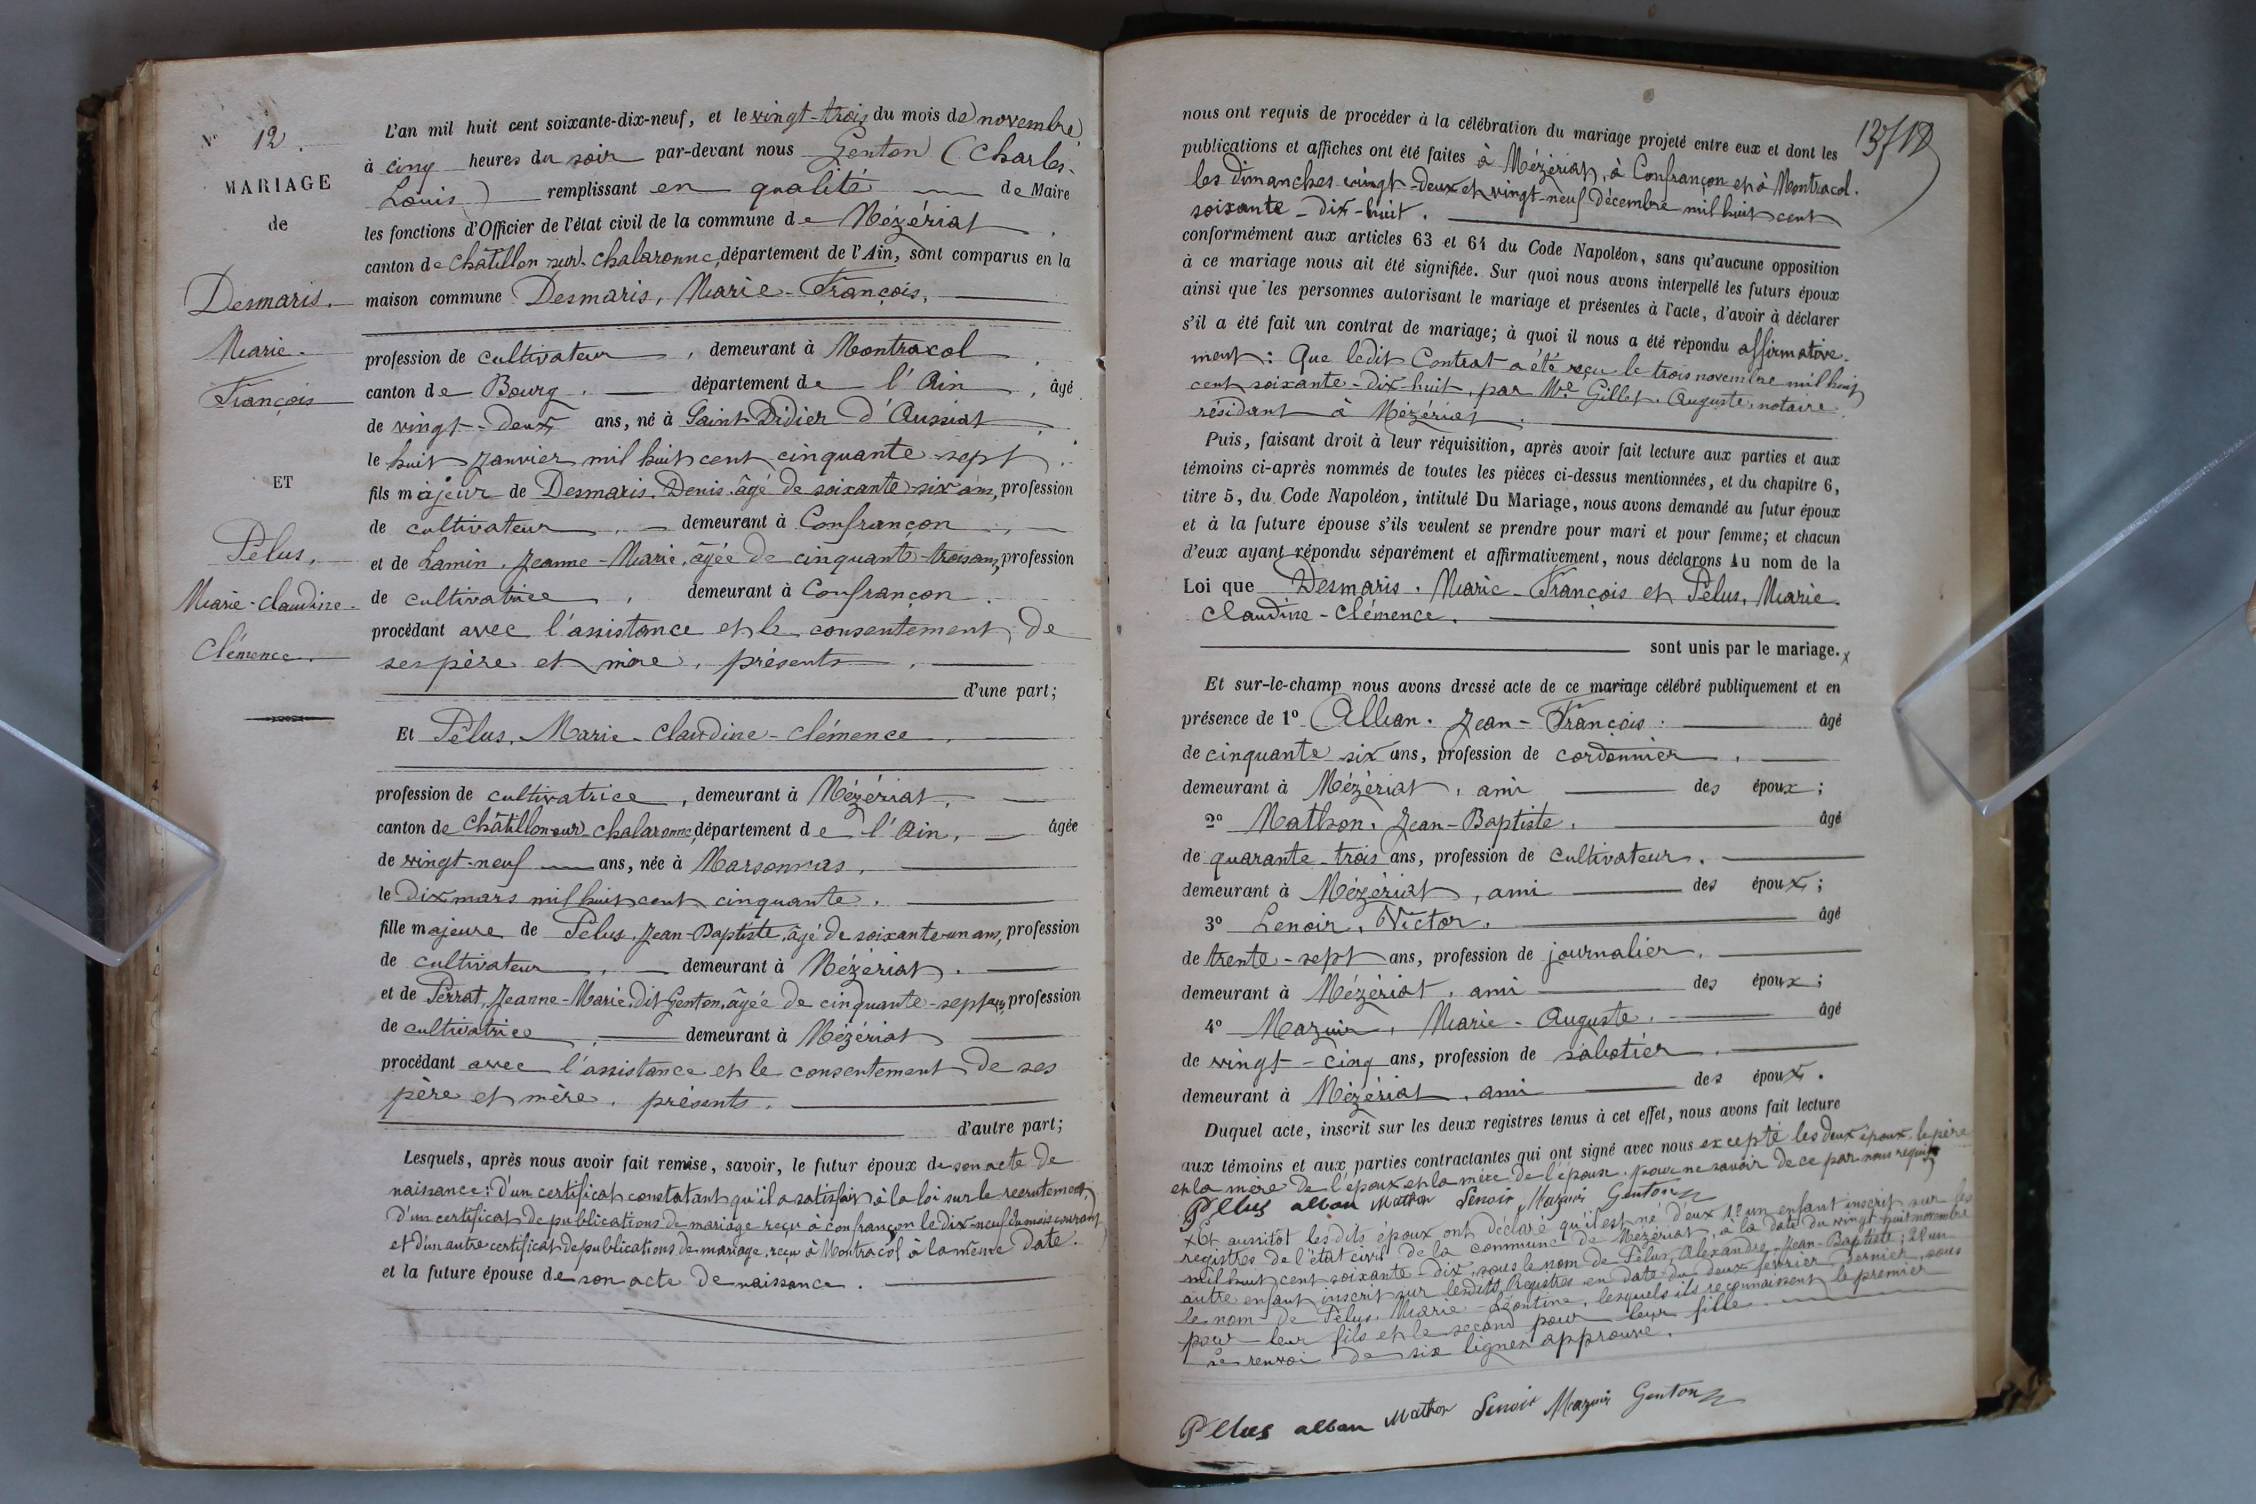 N° 12.
MARIAGE
de
Desmaris.
Marie-
François
ET
Pélus,
Marie-Claudine-
Clémence.
L'an mil huit cent soixante-dix-neuf, et le vingt-trois du mois de novembre
à cinq heures du soir par-devant nous Genton (Charles-
Louis) remplissant en qualité de Maire
les fonctions d'Officier de l'état civil de la commune de Mézériat
canton de Châtillon sur Chalaronne, département de l'Ain, sont comparus en la
maison commune Desmaris, Marie-François,
profession de cultivateur, demeurant à Montracol
canton de Bourg, département de l'Ain, âgé
de vingt-deux ans, né à Saint-Didier d'Aussiat
le huit Janvier mil huit cent cinquante-sept
fils majeur de Desmaris, Denis, âgé de soixante-six ans, profession
de cultivateur, demeurant à Confrançon
et de Lamin, Jeanne-Marie, âgée de cinquante-trois ans, profession
de cultivatrice, demeurant à Confrançon
procédant avec l'assistance et le consentement de
ses père et mère, présents,
d'une part;
Et Pélus, Marie-Claudine-Clémence,
profession de cultivatrice, demeurant à Mézériat,
canton de Châtillon sur Chalaronne, département de l'Ain, âgée
de vingt-neuf ans, née à Marsonnas,
le dix mars mil huit cent cinquante,
fille majeure de Pélus, Jean-Baptiste, âgé de soixante-un ans, profession
de cultivateur, demeurant à Mézériat.
et de Perrat, Jeanne-Marie, dit Genton, âgée de cinquante-sept ans, profession
de cultivatrice, demeurant à Mézériat
procédant avec l'assistance et le consentement de ses
père et mère, présents.
d'autre part;
Lesquels, après nous avoir fait remise, savoir, le futur époux de son acte de
naissance: d'un certificat constatant qu'il a satisfait à la loi sur le recrutement,
d'un certificat de publications de mariage reçu à Confrançon le dix-neuf du mois courant
et d'un autre certificat de publications de mariage, reçu à Montracol à la même date.
et la future épouse de son acte de naissance.
nous ont requis de procéder à la célébration du mariage projeté entre eux et dont les
publications et affiches ont été faites à Mézériat, à Confrançon et à Montracol.
les dimanches vingt-deux et vingt-neuf décembre mil huit cent
soixante-dix-huit.
conformément aux articles 63 et 64 du Code Napoléon, sans qu'aucune opposition
à ce mariage nous ait été signifiée. Sur quoi nous avons interpellé les futurs époux
ainsi que les personnes autorisant le mariage et présentes à l'acte, d'avoir à déclarer
s'il a été fait un contrat de mariage; à quoi il nous a été répondu affirmative-
ment: Que ledit Contrat a été reçu le trois novembre mil huit
cent soixante-dix-huit, par Me Gillet, Auguste, notaire
résidant à Mézériat.
Puis, faisant droit à leur réquisition, après avoir fait lecture aux parties et aux
témoins ci-après nommés de toutes les pièces ci-dessus mentionnées, et du chapitre 6,
titre 5, du Code Napoléon, intitulé Du Mariage, nous avons demandé au futur époux
et à la future épouse s'ils veulent se prendre pour mari et pour femme; et chacun
d'eux ayant répondu séparément et affirmativement, nous déclarons Au nom de la
Loi que Desmaris, Marie-François et Pélus, Marie-
Claudine-Clémence,
sont unis par le mariage. x
Et sur-le-champ nous avons dressé acte de ce mariage célébré publiquement et en
présence de 1° Alban, Jean-François âgé
de cinquante-six ans, profession de cordonnier,
demeurant à Mézériat, ami des époux;
2° Mathon, Jean-Baptiste, âgé
de quarante-trois ans, profession de cultivateur,
demeurant à Mézériat, ami des époux;
3° Lenoir, Victor, âgé
de trente-sept ans, profession de journalier,
demeurant à Mézériat, ami des époux;
4° Mazuir, Marie-Auguste, âgé
de vingt-cinq ans, profession de sabotier,
demeurant à Mézériat, ami des époux.
Duquel acte, inscrit sur les deux registres tenus à cet effet, nous avons fait lecture
aux témoins et aux parties contractantes qui ont signé avec nous excepté les deux époux, le père
et la mère de l'époux et la mère de l'épouse, pour ne savoir de ce par nous requis
Pélus alban Mathon Lenoir Mazuir Genton
x Et aussitôt lesdits époux ont déclaré qu'il est né d'eux 1° un enfant inscrit sur les
registres de l'état civil de la commune de Mézériat, à la date du vingt-huit novembre
mil huit cent soixante-dix, sous le nom de Pélus, Alexandre-Jean-Baptiste; 2° un
autre enfant inscrit sur lesdits Registres en date du deux février dernier, sous
le nom de Pélus, Marie-Léontine, lesquels ils reconnaissent le premier
pour leur fils et le second pour leur fille.
Le renvoi de six lignes approuvé.
Pélus alban Mathon Lenoir Mazuir Genton